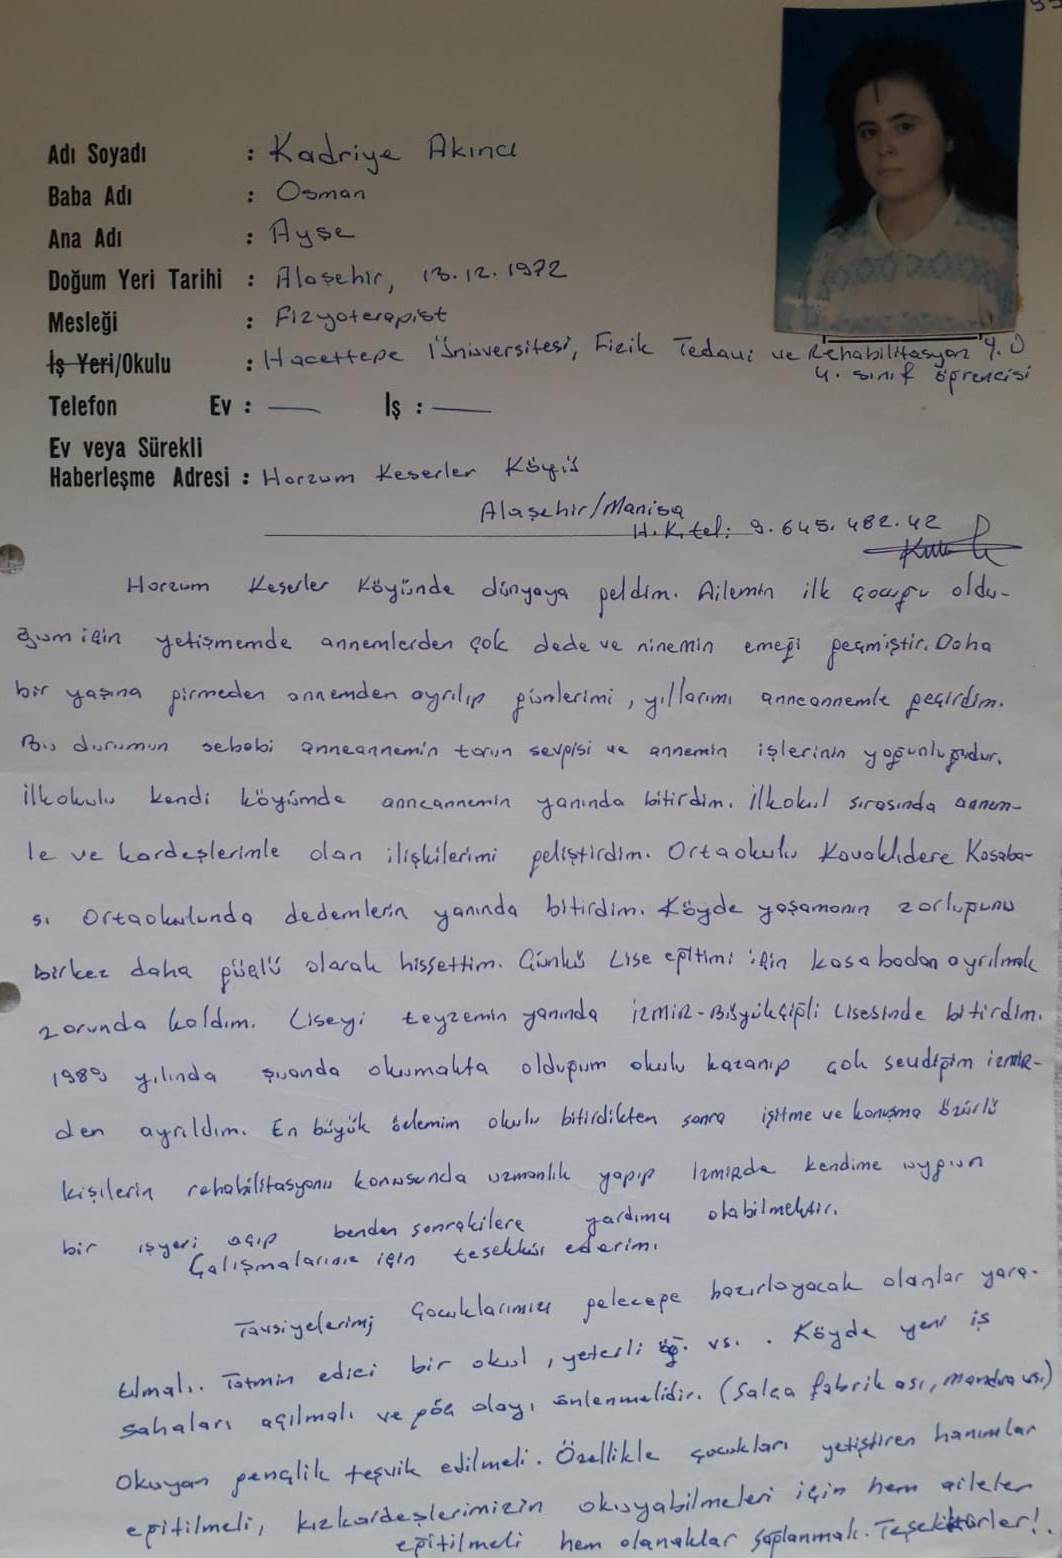 Adı Soyadı : Kadriye Akıncı
Baba Adı : Osman
Ana Adı : Ayşe
Doğum Yeri Tarihi : Alaşehir, 13.12.1972
Mesleği : Fizyoterapist
İş Yeri/Okulu : Hacettepe Üniversitesi, Fizik Tedavi ve Rehabilitasyon Y.O
4. sınıf öğrencisi
Telefon Ev : — İş : —
Ev veya Sürekli
Haberleşme Adresi : Horzum Keserler Köyü
Alaşehir/Manisa
H.K.tel: 9.645.482.42
Horzum Keserler Köyünde dünyaya geldim. Ailemin ilk çocuğu oldu-
ğum için yetişmemde annemlerden çok dede ve ninemin emeği geçmiştir. Daha
bir yaşına girmeden annemden ayrılıp günlerimi, yıllarımı anneannemle geçirdim.
Bu durumun sebebi anneannemin torun sevgisi ve annemin işlerinin yoğunluğudur.
İlkokulu kendi köyümde anneannemin yanında bitirdim. İlkokul sırasında annem-
le ve kardeşlerimle olan ilişkilerimi geliştirdim. Ortaokulu Kavaklıdere Kasaba-
sı Ortaokulunda dedemlerin yanında bitirdim. Köyde yaşamanın zorluğunu
birkez daha güçlü olarak hissettim. Çünkü Lise eğitimi için kasabadan ayrılmak
zorunda kaldım. Liseyi teyzemin yanında İZMİR-Büyükçiğli Lisesinde bitirdim.
1989 yılında şuanda okumakta olduğum okulu kazanıp çok sevdiğim İZMİR-
den ayrıldım. En büyük özlemim okulu bitirdikten sonra işitme ve konuşma özürlü
kişilerin rehabilitasyonu konusunda uzmanlık yapıp İzmirde kendime uygun
bir işyeri açıp benden sonrakilere yardımcı olabilmektir.
Çalışmalarınız için teşekkür ederim.
Tavsiyelerim; Çocuklarımızı geleceğe hazırlayacak olanlar yara-
tılmalı. Tatmin edici bir okul, yeterli öğ. vs. . Köyde yeni iş
sahaları açılmalı ve göç olayı önlenmelidir. (Salça fabrikası, mandıra vs.)
Okuyan gençlik teşvik edilmeli. Özellikle çocukları yetiştiren hanımlar
eğitilmeli, kızkardeşlerimizin okuyabilmeleri için hem aileler
eğitilmeli hem olanaklar sağlanmalı. Teşekkürler!.